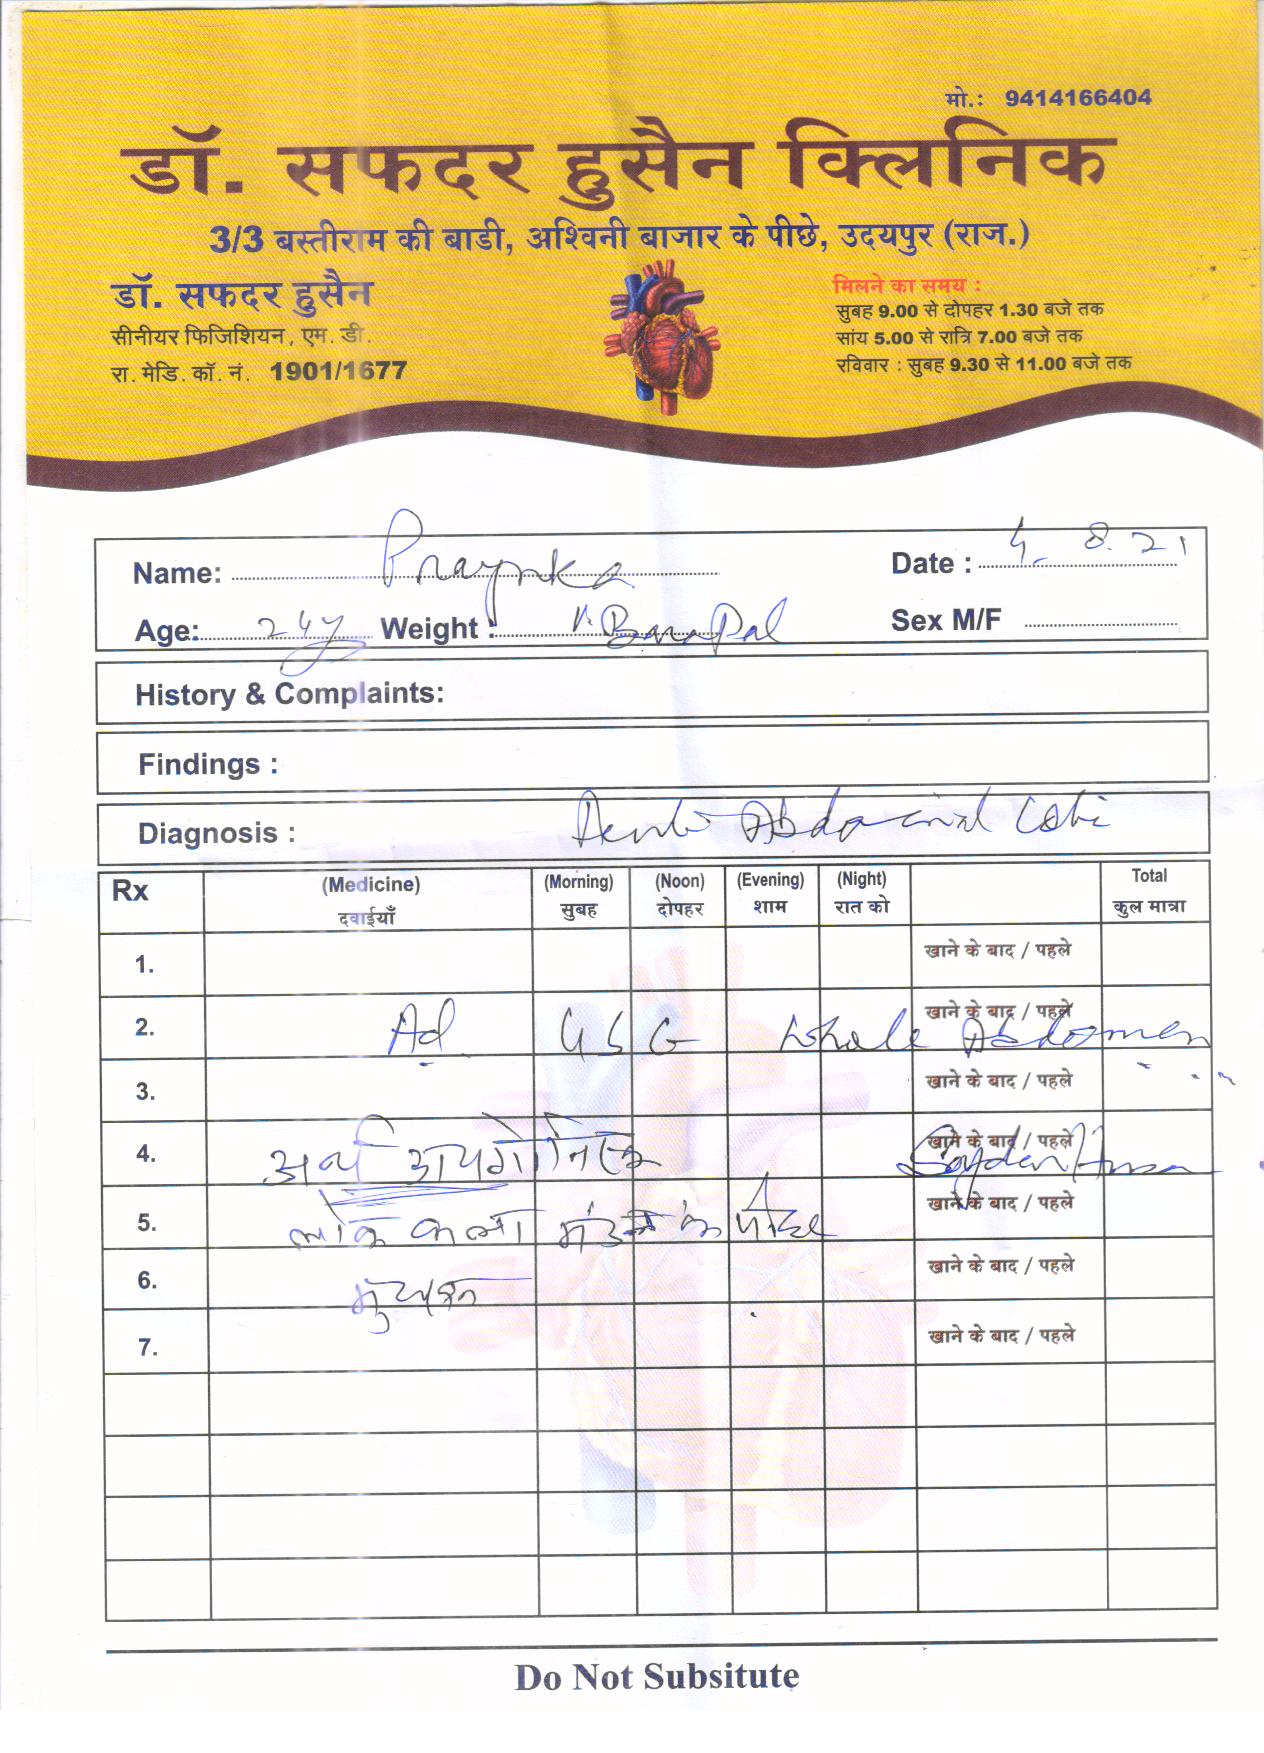 मो.: 9414166404
डॉ. सफदर हुसैन क्लिनिक
3/3 बस्तीराम की बाडी, अश्विनी बाजार के पीछे, उदयपुर (राज.)
डॉ. सफदर हुसैन
सीनीयर फिजिशियन, एम. डी.
रा. मेडि. कॉ. नं. 1901/1677
मिलने का समय :
सुबह 9.00 से दोपहर 1.30 बजे तक
सांय 5.00 से रात्रि 7.00 बजे तक
रविवार : सुबह 9.30 से 11.00 बजे तक
Name: Praynka Date : 4. 8.21
Age: 24y Weight : Sex M/F
History & Complaints:
Findings :
Diagnosis : Abdominal
Rx (Medicine) (Morning) (Noon) (Evening) (Night) Total
दवाईयाँ सुबह दोपहर शाम रात को कुल मात्रा
1. खाने के बाद / पहले
2. Ad. USG whole Abdomen खाने के बाद / पहले
3. खाने के बाद / पहले
4. खाने के बाद / पहले
5. लोक कला मंडल के पीछे खाने के बाद / पहले
6. खाने के बाद / पहले
7. खाने के बाद / पहले
Do Not Subsitute